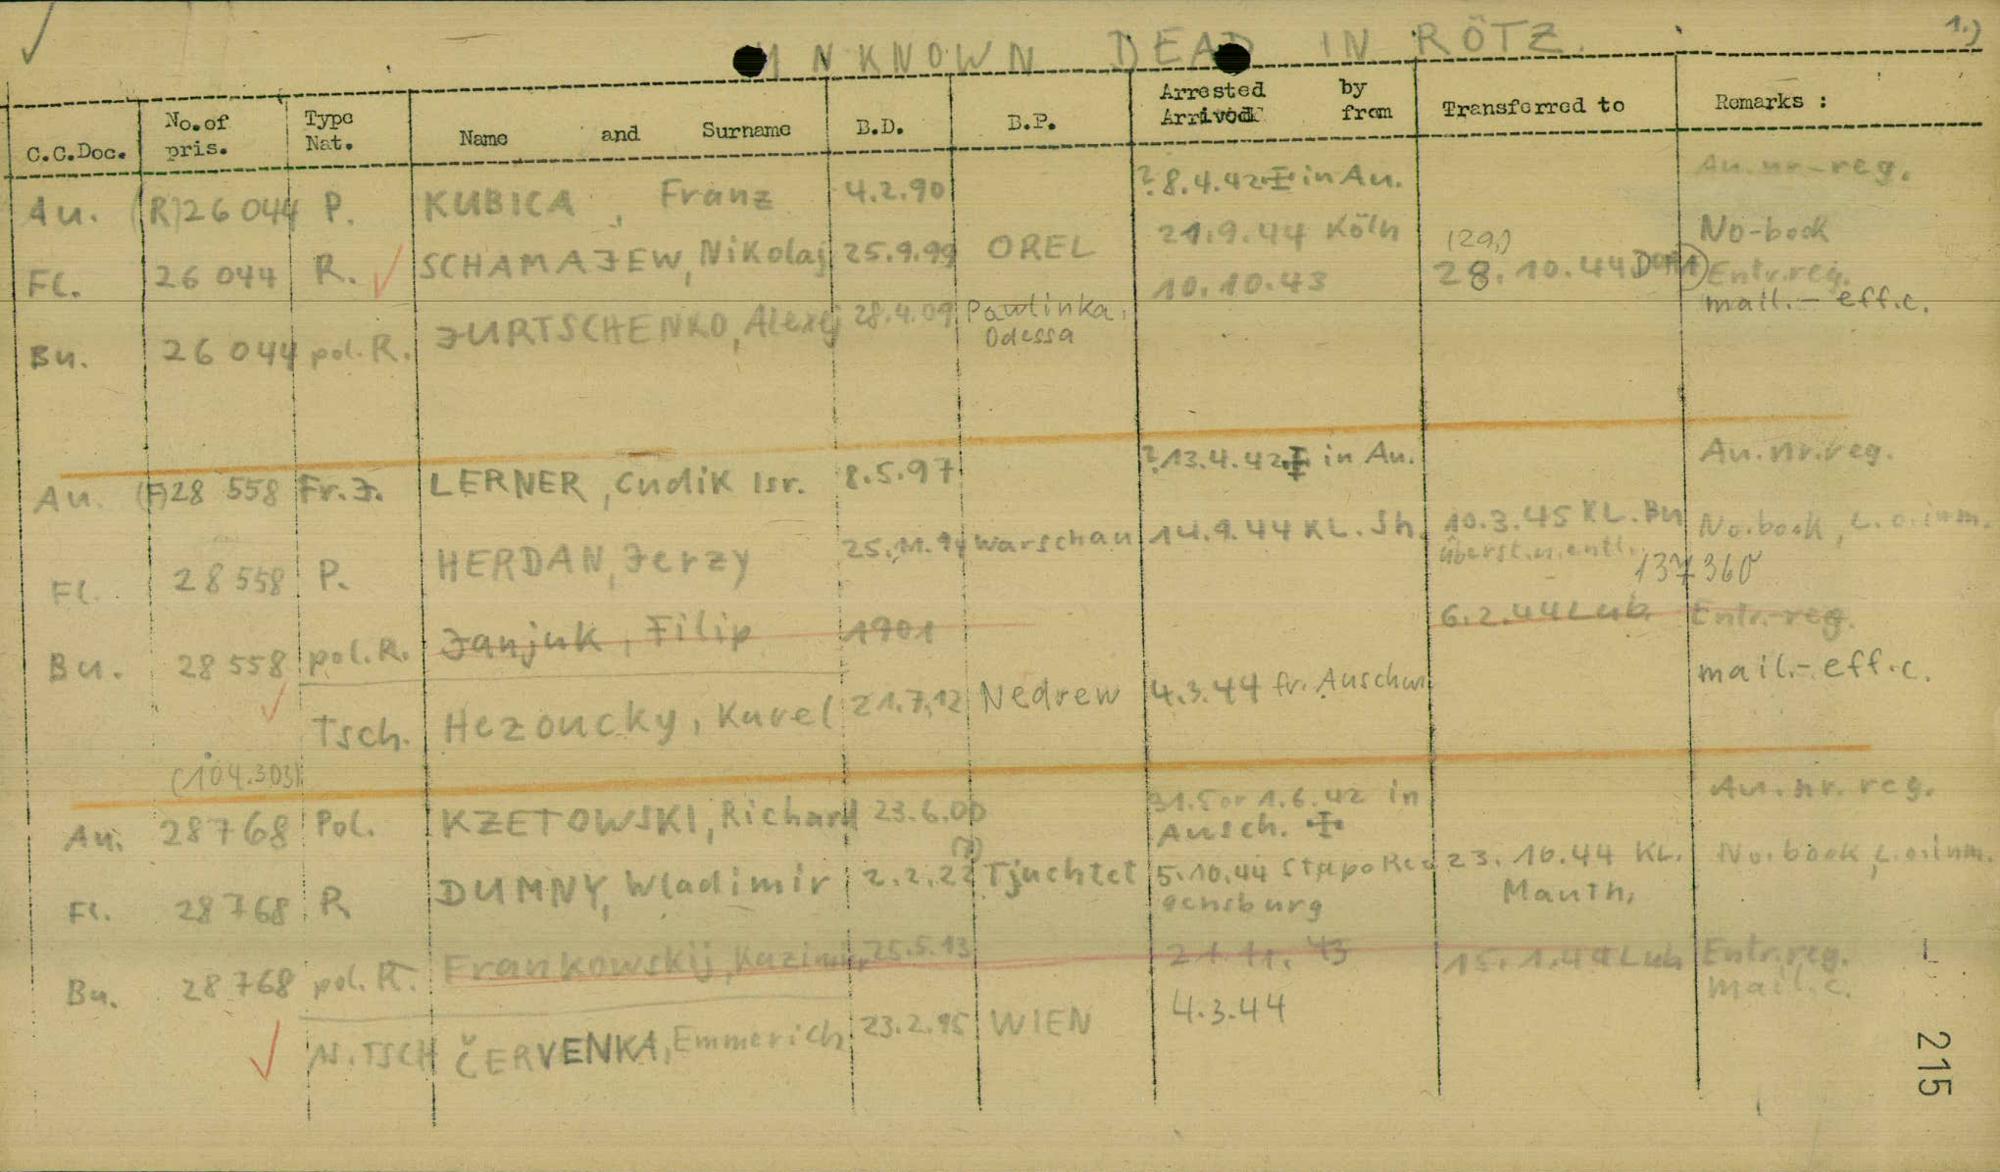 UNKNOWN DEAD IN RÖTZ.
1.)
C.C.Doc. No.of pris. Type Nat. Name and Surname B.D. B.P. Arrested by Arrived from Transferred to Remarks :
Au. (R)26044 P. KUBICA, Franz 4.2.90 ?8.4.42 in Au. Au.nr-reg.
Fl. 26 044 R. SCHAMAJEW, Nikolaj 25.9.99 OREL 21.9.44 Köln (29.) 28.10.44 No-book
Bu. 26 044 pol. R. JURTSCHENKO, Alexej 28.4.09 Pawlinka, Odessa 10.10.43 Entr.reg.
mail.- eff.c.
Au. (F)28 558 Fr.J. LERNER, Cudik Isr. 8.5.97 ?13.4.42 in Au. Au.nr.reg.
Fl. 28 558 P. HERDAN, Jerzy 25.11.94 Warschau 14.9.44 KL.Sh. 10.3.45 KL.Bu No.book, L.o.inm.
überst.u.entl.
137360
Bu. 28 558 pol.R. Janjuk, Filip 1901 6.2.44 Lub. Entr.-reg.
mail.-eff.c.
Tsch. Hezoucky, Karel 21.7.12 Nedrew 4.3.44 fr. Auschw
(104.303)
Au. 28768 Pol. KZETOWSKI, Richard 23.6.00 31.5 or 1.6.42 in Ausch. Au.nr.reg.
Fl. 28768 R. DUMNY, Wladimir 2.2.22 (?) Tjuchtet 5.10.44 Stapo Regensburg 23.10.44 KL. Mauth. No.book, L.o.inm.
Bu. 28768 pol.R. Frankowskij, Kazimir 25.5.13 21.11.43 15.1.44 Lub Entr.reg.
mail.c.
N.TSCH ČERVENKA, Emmerich 23.2.95 WIEN 4.3.44
215